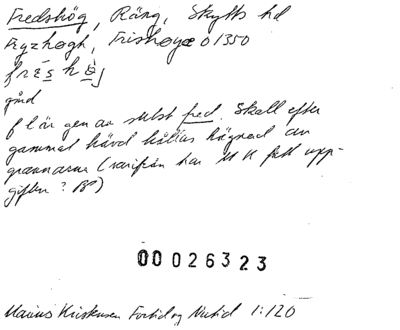 Fredshög, Räng, Skytts hd
Fryzhøgh, Frishøye o 1350
frɛ̄s hö̀j
gård
f l är gen av subst fred. Skall efter
gammal hävd hållas hägnad av
grannarna (varifrån har M K fått upp-
giften? B)
00026323
Marius Kristensen Fortid og Nutid 1:120